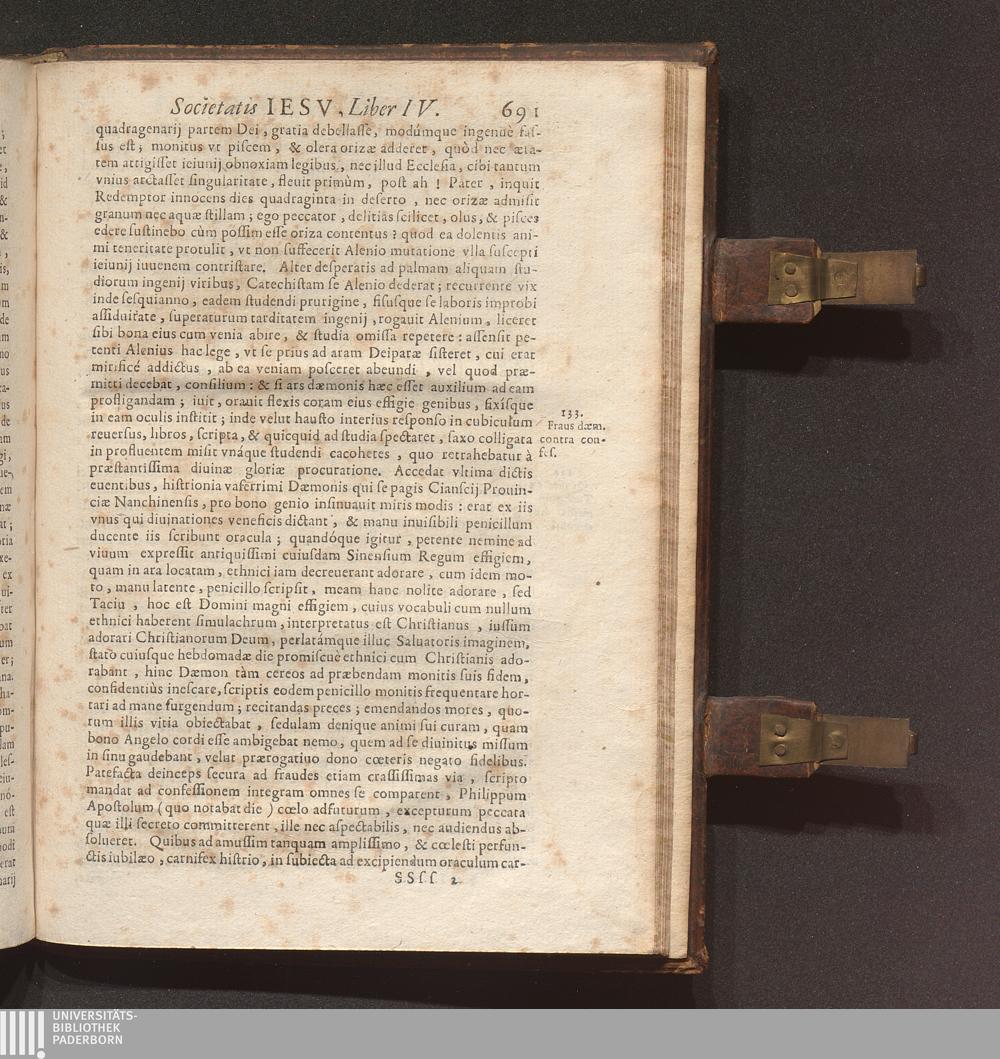 Societatis IESV, Liber IV. 691
quadragenarij partem Dei, gratia debellasse, modúmque ingenuè fas-
sus est; monitus vt piscem, & olera orizæ adderet, quòd nec æta-
tem attigisset ieiunij obnoxiam legibus, nec illud Ecclesia, cibi tantum
vnius arctasset singularitate, fleuit primùm, post ah ! Pater, inquit
Redemptor innocens dies quadraginta in deserto, nec orizæ admisit
granum nec aquæ stillam; ego peccator, delitias scilicet, olus, & pisces
edere sustinebo cùm possim esse oriza contentus? quod ea dolentis ani-
mi teneritate protulit, vt non suffecerit Alenio mutatione vlla suscepti
ieiunij iuuenem contristare. Alter desperatis ad palmam aliquam stu-
diorum ingenij viribus, Catechistam se Alenio dederat; recurrente vix
inde sesquianno, eadem studendi prurigine, fisusque se laboris improbi
assiduitate, superaturum tarditatem ingenij, rogauit Alenium, liceret
sibi bona eius cum venia abire, & studia omissa repetere: assensit pe-
tenti Alenius hac lege, vt se prius ad aram Deiparæ sisteret, cui erat
mirificé addictus, ab ea veniam posceret abeundi, vel quod præ-
mitti decebat, consilium: & si ars dæmonis hæc esset auxilium ad eam
profligandam; iuit, orauit flexis coram eius effigie genibus, fixísque
in eam oculis institit; inde velut hausto interius responso in cubiculum
reuersus, libros, scripta, & quicquid ad studia spectaret, saxo colligata
in profluentem misit vnáque studendi cacohetes, quo retrahebatur à
præstantissima diuinæ gloriæ procuratione. Accedat vltima dictis
euentibus, histrionia vaferrimi Dæmonis qui se pagis Cianscij Prouin-
ciæ Nanchinensis, pro bono genio insinuauit miris modis: erat ex iis
vnus qui diuinationes veneficis dictant, & manu inuisibili penicillum
ducente iis scribunt oracula; quandóque igitur, petente nemine ad
viuum expressit antiquissimi cuiusdam Sinensium Regum effigiem,
quam in ara locatam, ethnici iam decreuerant adorare, cum idem mo-
to, manu latente, penicillo scripsit, meam hanc nolite adorare, sed
Taciu, hoc est Domini magni effigiem, cuius vocabuli cum nullum
ethnici haberent simulachrum, interpretatus est Christianus, iussùm
adorari Christianorum Deum, perlatámque illuc Saluatoris imaginem,
stato cuiusque hebdomadæ die promiscuè ethnici cum Christianis ado-
rabant, hinc Dæmon tàm cereos ad præbendam monitis suis fidem,
confidentiùs inescare, scriptis eodem penicillo monitis frequentare hor-
tari ad mane surgendum; recitandas preces; emendandos mores, quo-
rum illis vitia obiectabat, sedulam denique animi sui curam, quam
bono Angelo cordi esse ambigebat nemo, quem ad se diuinitus missum
in sinu gaudebant, velut prærogatiuo dono cœteris negato fidelibus.
Patefacta deinceps secura ad fraudes etiam crassissimas via, scripto
mandat ad confessionem integram omnes se comparent, Philippum
Apostolum (quo notabat die) cœlo adfuturum, excepturum peccata
quæ illi secreto committerent, ille nec aspectabilis, nec audiendus ab-
solueret. Quibus ad amussim tanquam amplissimo, & cœlesti perfun-
ctis iubilæo, carnifex histrio, in subiecta ad excipiendum oraculum car-
SSss 2
133.
Fraus dæm.
contra con-
fes.
UNIVERSITÄTS-
BIBLIOTHEK
PADERBORN